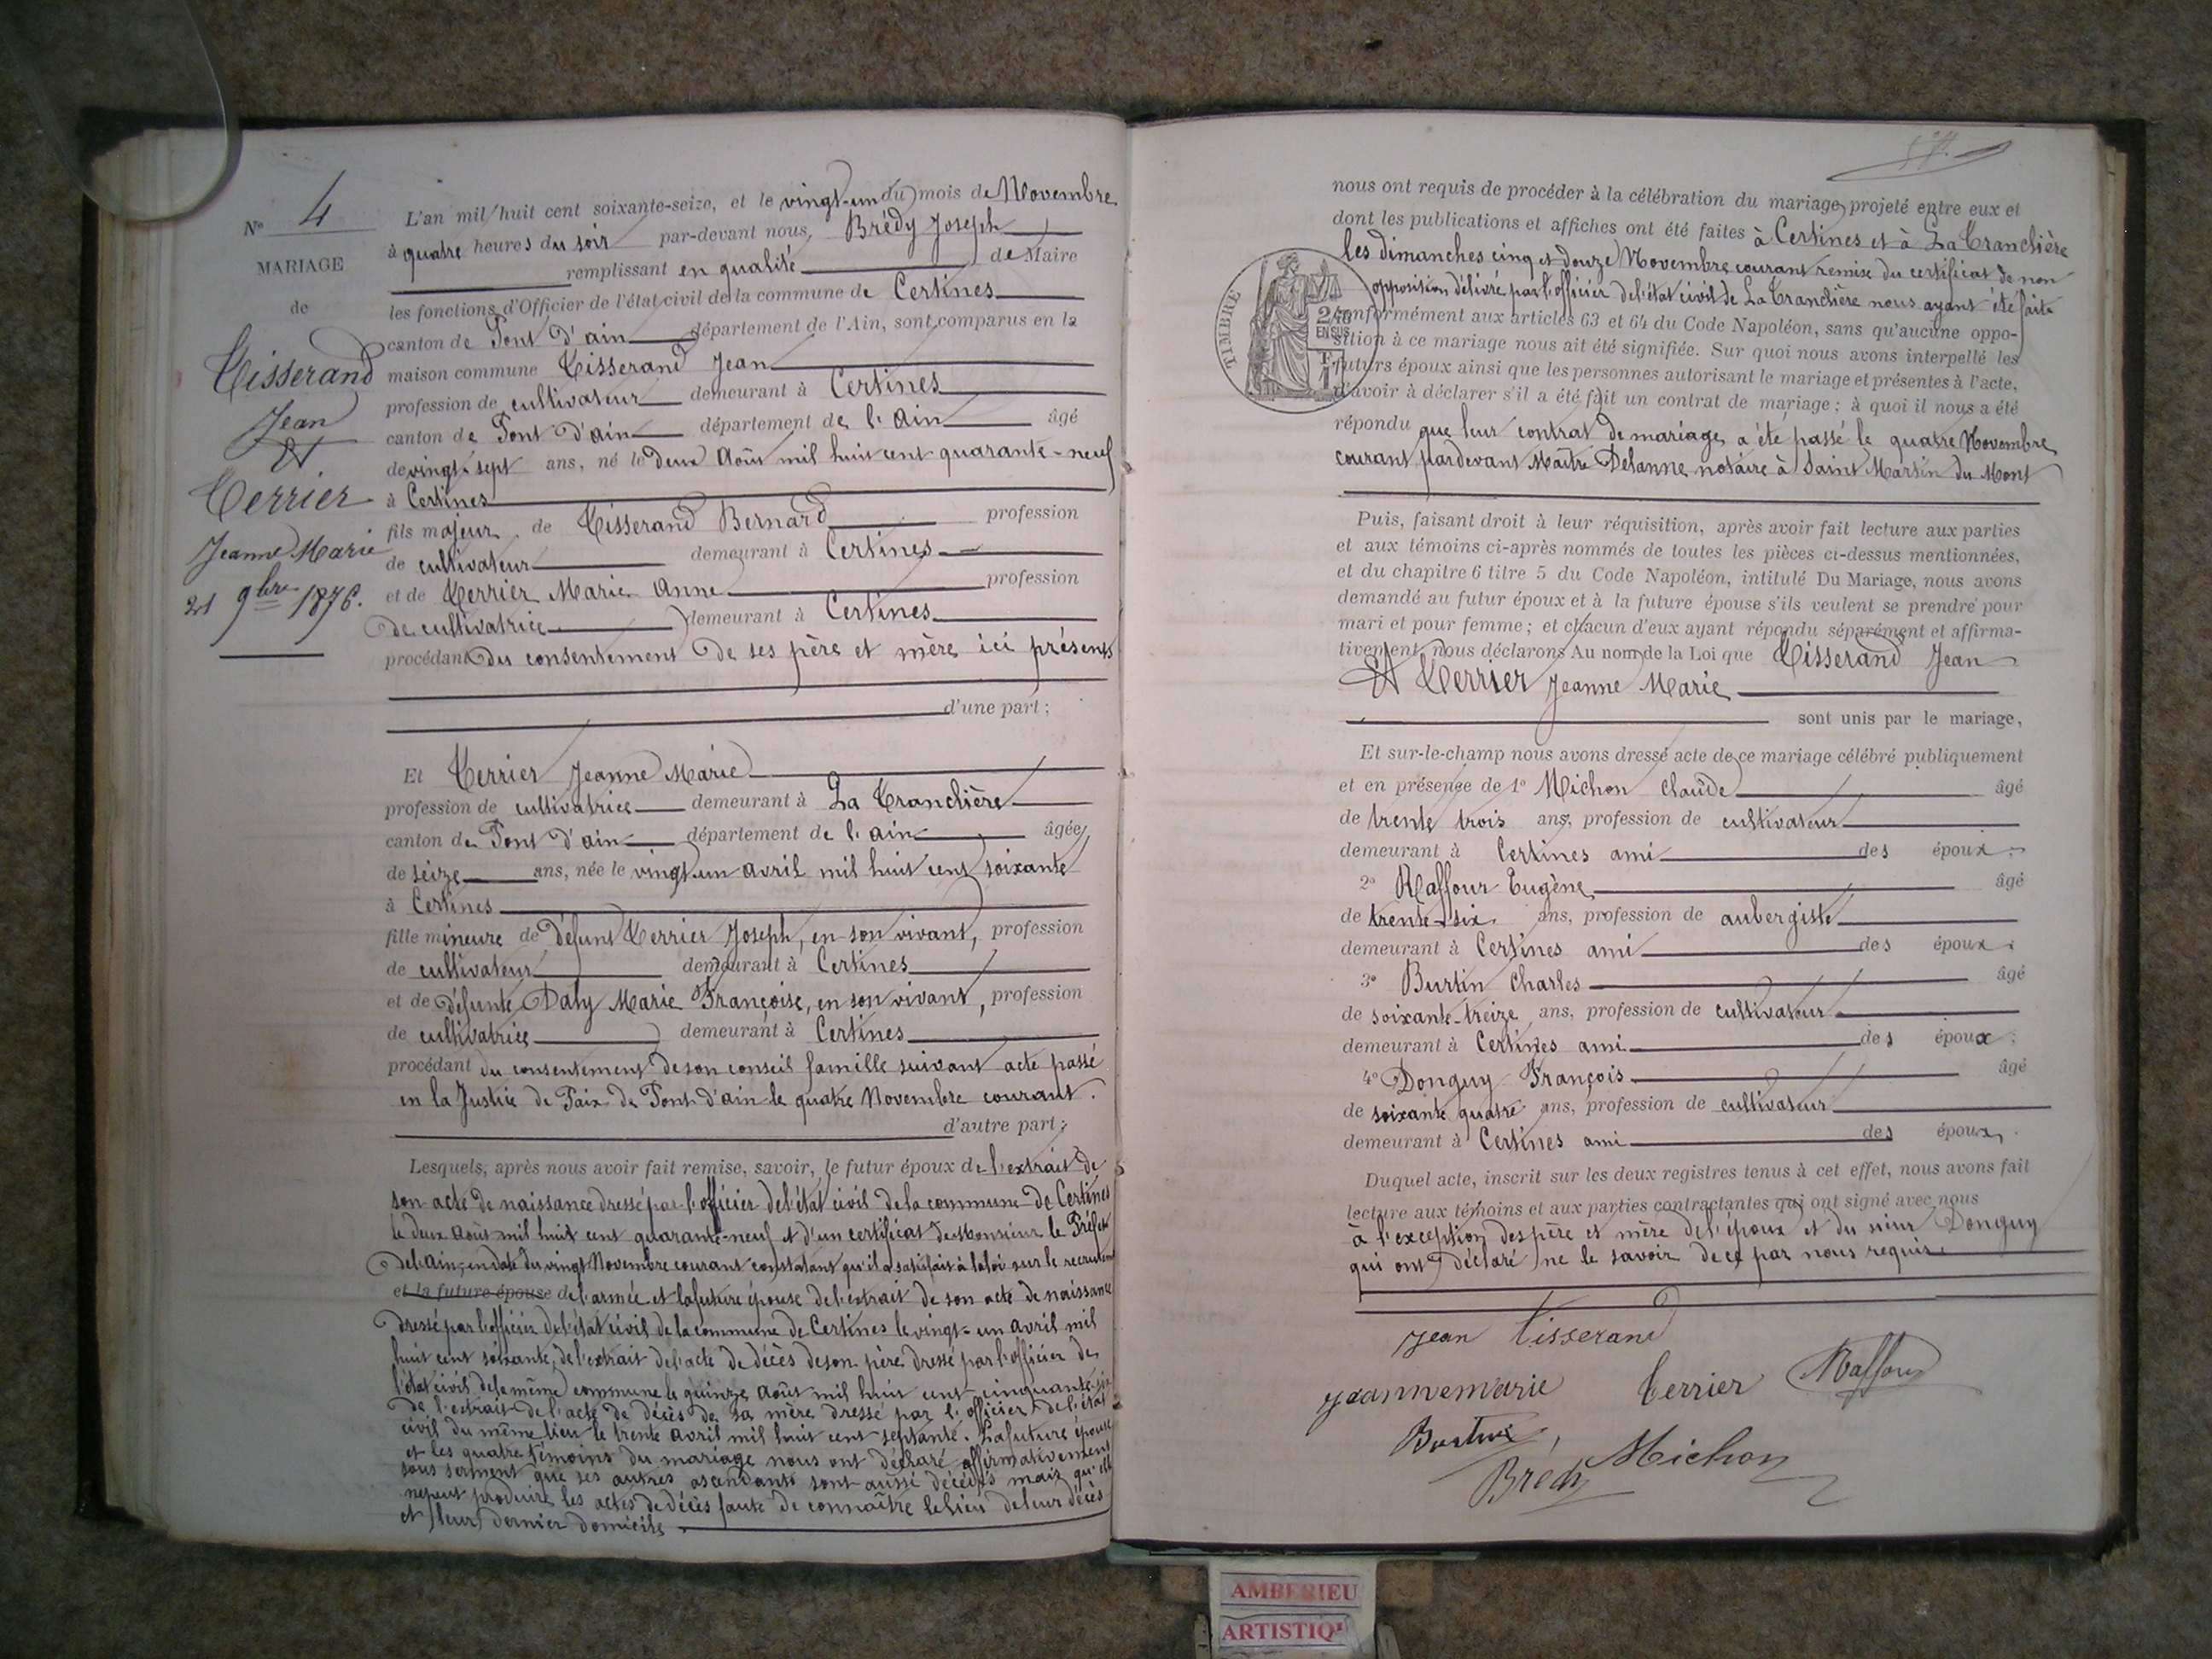 No 4
MARIAGE
de
Tisserand
Jean
Et
Terrier
Jeanne Marie
21 9bre 1876.
L'an mil huit cent soixante-seize, et le vingt-un du mois de Novembre
à quatre heures du soir par-devant nous, Brédy Joseph
remplissant en qualité de Maire
les fonctions d'Officier de l'état civil de la commune de Certines
canton de Pont d'ain département de l'Ain, sont comparus en la
maison commune Tisserand Jean
profession de cultivateur demeurant à Certines
canton de Pont d'ain département de l'Ain âgé
de vingt-sept ans, né le deux Août mil huit cent quarante-neuf
à Certines
fils majeur de Tisserand Bernard profession
de cultivateur demeurant à Certines
et de Terrier Marie Anne profession
de cultivatrice demeurant à Certines
procédant du consentement de ses père et mère ici présents
d'une part ;
Et Terrier Jeanne Marie
profession de cultivatrice demeurant à La Tranclière
canton de Pont d'ain département de l'ain âgée
de seize ans, née le vingt-un avril mil huit cent soixante
à Certines
fille mineure de défunt Terrier Joseph, en son vivant, profession
de cultivateur demeurant à Certines
et de défunte Daty Marie Françoise, en son vivant, profession
de cultivatrice demeurant à Certines
procédant du consentement de son conseil famille suivant acte passé
en la Justice de Paix de Pont d'ain le quatre Novembre courant.
d'autre part ;
Lesquels, après nous avoir fait remise, savoir, le futur époux de l'extrait de
son acte de naissance dressé par l'officier de l'état civil de la commune de Certines
le deux Août mil huit cent quarante-neuf et d'un certificat de Monsieur le Préfet
de l'Ain, en date du vingt Novembre courant constatant qu'il a satisfait à la loi sur le recrutement
et la future épouse de l'armée et la future épouse de l'extrait de son acte de naissance
dressé par l'officier de l'état civil de la commune de Certines le vingt-un avril mil
huit cent soixante, de l'extrait de l'acte de décès de son père dressé par l'officier de
l'état civil de la même commune le quinze Août mil huit cent cinquante
de l'extrait de l'acte de décès de sa mère dressé par l'officier de l'état
civil du même lieu le trente avril mil huit cent septante. La future épouse
et les quatre témoins du mariage nous ont déclaré affirmativement
sous serment que ses autres ascendants sont aussi décédés mais qu'elle
ne peut produire les actes de décès faute de connaître le lieu de leur décès
et leur dernier domicile.
nous ont requis de procéder à la célébration du mariage projeté entre eux et
dont les publications et affiches ont été faites à Certines et à La Tranclière
les dimanches cinq et douze Novembre courant remise du certificat de non
opposition délivré par l'officier de l'état civil de La Tranclière nous ayant été faite
TIMBRE
2/10
EN SUS
conformément aux articles 63 et 64 du Code Napoléon, sans qu'aucune oppo-
sition à ce mariage nous ait été signifiée. Sur quoi nous avons interpellé les
futurs époux ainsi que les personnes autorisant le mariage et présentes à l'acte,
d'avoir à déclarer s'il a été fait un contrat de mariage ; à quoi il nous a été
répondu que leur contrat de mariage a été passé le quatre Novembre
courant pardevant Maître Delanne notaire à Saint Martin du Mont
Puis, faisant droit à leur réquisition, après avoir fait lecture aux parties
et aux témoins ci-après nommés de toutes les pièces ci-dessus mentionnées,
et du chapitre 6 titre 5 du Code Napoléon, intitulé Du Mariage, nous avons
demandé au futur époux et à la future épouse s'ils veulent se prendre pour
mari et pour femme ; et chacun d'eux ayant répondu séparément et affirma-
tivement, nous déclarons Au nom de la Loi que Tisserand Jean
Et Terrier Jeanne Marie
sont unis par le mariage,
Et sur-le-champ nous avons dressé acte de ce mariage célébré publiquement
et en présence de 1o Michon Claude âgé
de trente trois ans, profession de cultivateur
demeurant à Certines ami des époux ;
2o Raffour Eugène âgé
de trente-six ans, profession de aubergiste
demeurant à Certines ami des époux ;
3o Burtin Charles âgé
de soixante-treize ans, profession de cultivateur
demeurant à Certines ami des époux ;
4o Donguy François âgé
de soixante quatre ans, profession de cultivateur
demeurant à Certines ami des époux.
Duquel acte, inscrit sur les deux registres tenus à cet effet, nous avons fait
lecture aux témoins et aux parties contractantes qui ont signé avec nous
à l'exception des père et mère de l'époux et du sieur Donguy
qui ont déclaré ne le savoir de ce par nous requis.
Jean Tisserand
jeannemarie Terrier Raffour
Burtin
Brédy Michon
AMBERIEU
ARTISTIQ